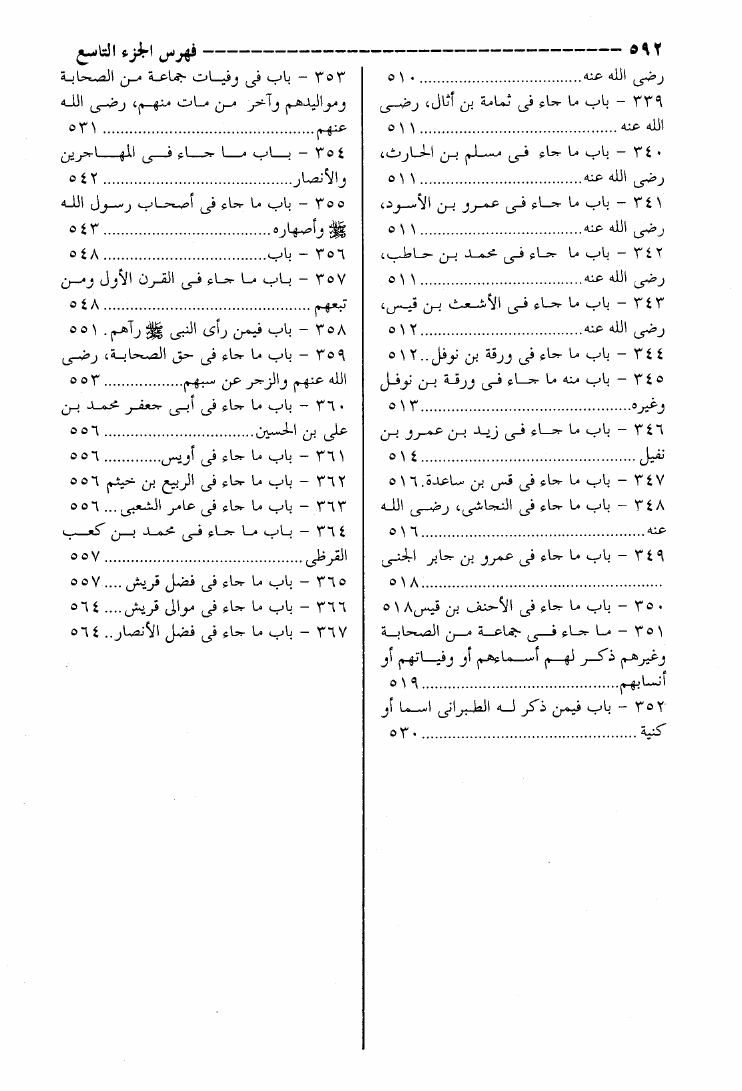 ٥٩٢ ــــــــــــــــــــــــــــــــــــــــ فهرس الجزء التاسع
رضى الله عنه......................................٥١٠
٣٣٩ - باب ما جاء فى ثمامة بن أثال، رضى
الله عنه..............................................٥١١
٣٤٠ - باب ما جاء فى مسلم بن الحارث،
رضى الله عنه......................................٥١١
٣٤١ - باب ما جاء فى عمرو بن الأسود،
رضى الله عنه......................................٥١١
٣٤٢ - باب ما جاء فى محمد بن حاطب،
رضى الله عنه......................................٥١١
٣٤٣ - باب ما جاء فى الأشعث بن قيس،
رضى الله عنه......................................٥١٢
٣٤٤ - باب ما جاء فى ورقة بن نوفل..٥١٢
٣٤٥ - باب منه ما جاء فى ورقة بن نوفل
وغيره.................................................٥١٣
٣٤٦ - باب ما جاء فى زيد بن عمرو بن
نفيل...................................................٥١٤
٣٤٧ - باب ما جاء فى قس بن ساعدة.٥١٦
٣٤٨ - باب ما جاء فى النجاشى، رضى الله
عنه.....................................................٥١٦
٣٤٩ - باب ما جاء فى عمرو بن جابر الجنى
..........................................................٥١٨
٣٥٠ - باب ما جاء فى الأحنف بن قيس٥١٨
٣٥١ - ما جاء فى جماعة من الصحابة
وغيرهم ذكر لهم أسماءهم أو وفياتهم أو
أنسابهم..............................................٥١٩
٣٥٢ - باب فيمن ذكر له الطبرانى اسما أو
كنية...................................................٥٣٠
٣٥٣ - باب فى وفيات جماعة من الصحابة
ومواليدهم وآخر من مات منهم، رضى الله
عنهم..................................................٥٣١
٣٥٤ - باب ما جاء فى المهاجرين
والأنصار............................................٥٤٢
٣٥٥ - باب ما جاء فى أصحاب رسول الله
ﷺ وأصهاره.......................................٥٤٣
٣٥٦ - باب.......................................٥٤٨
٣٥٧ - باب ما جاء فى القرن الأول ومن
تبعهم.................................................٥٤٨
٣٥٨ - باب فيمن رأى النبى ﷺ رآهم. ٥٥١
٣٥٩ - باب ما جاء فى حق الصحابة، رضى
الله عنهم والزجر عن سبهم..................٥٥٣
٣٦٠ - باب ما جاء فى أبى جعفر محمد بن
على بن الحسين..................................٥٥٦
٣٦١ - باب ما جاء فى أويس.............٥٥٦
٣٦٢ - باب ما جاء فى الربيع بن خيثم ٥٥٦
٣٦٣ - باب ما جاء فى عامر الشعبى... ٥٥٦
٣٦٤ - باب ما جاء فى محمد بن كعب
القرظى..............................................٥٥٧
٣٦٥ - باب ما جاء فى فضل قريش ....٥٥٧
٣٦٦ - باب ما جاء فى موالى قريش....٥٦٤
٣٦٧ - باب ما جاء فى فضل الأنصار..٥٦٤